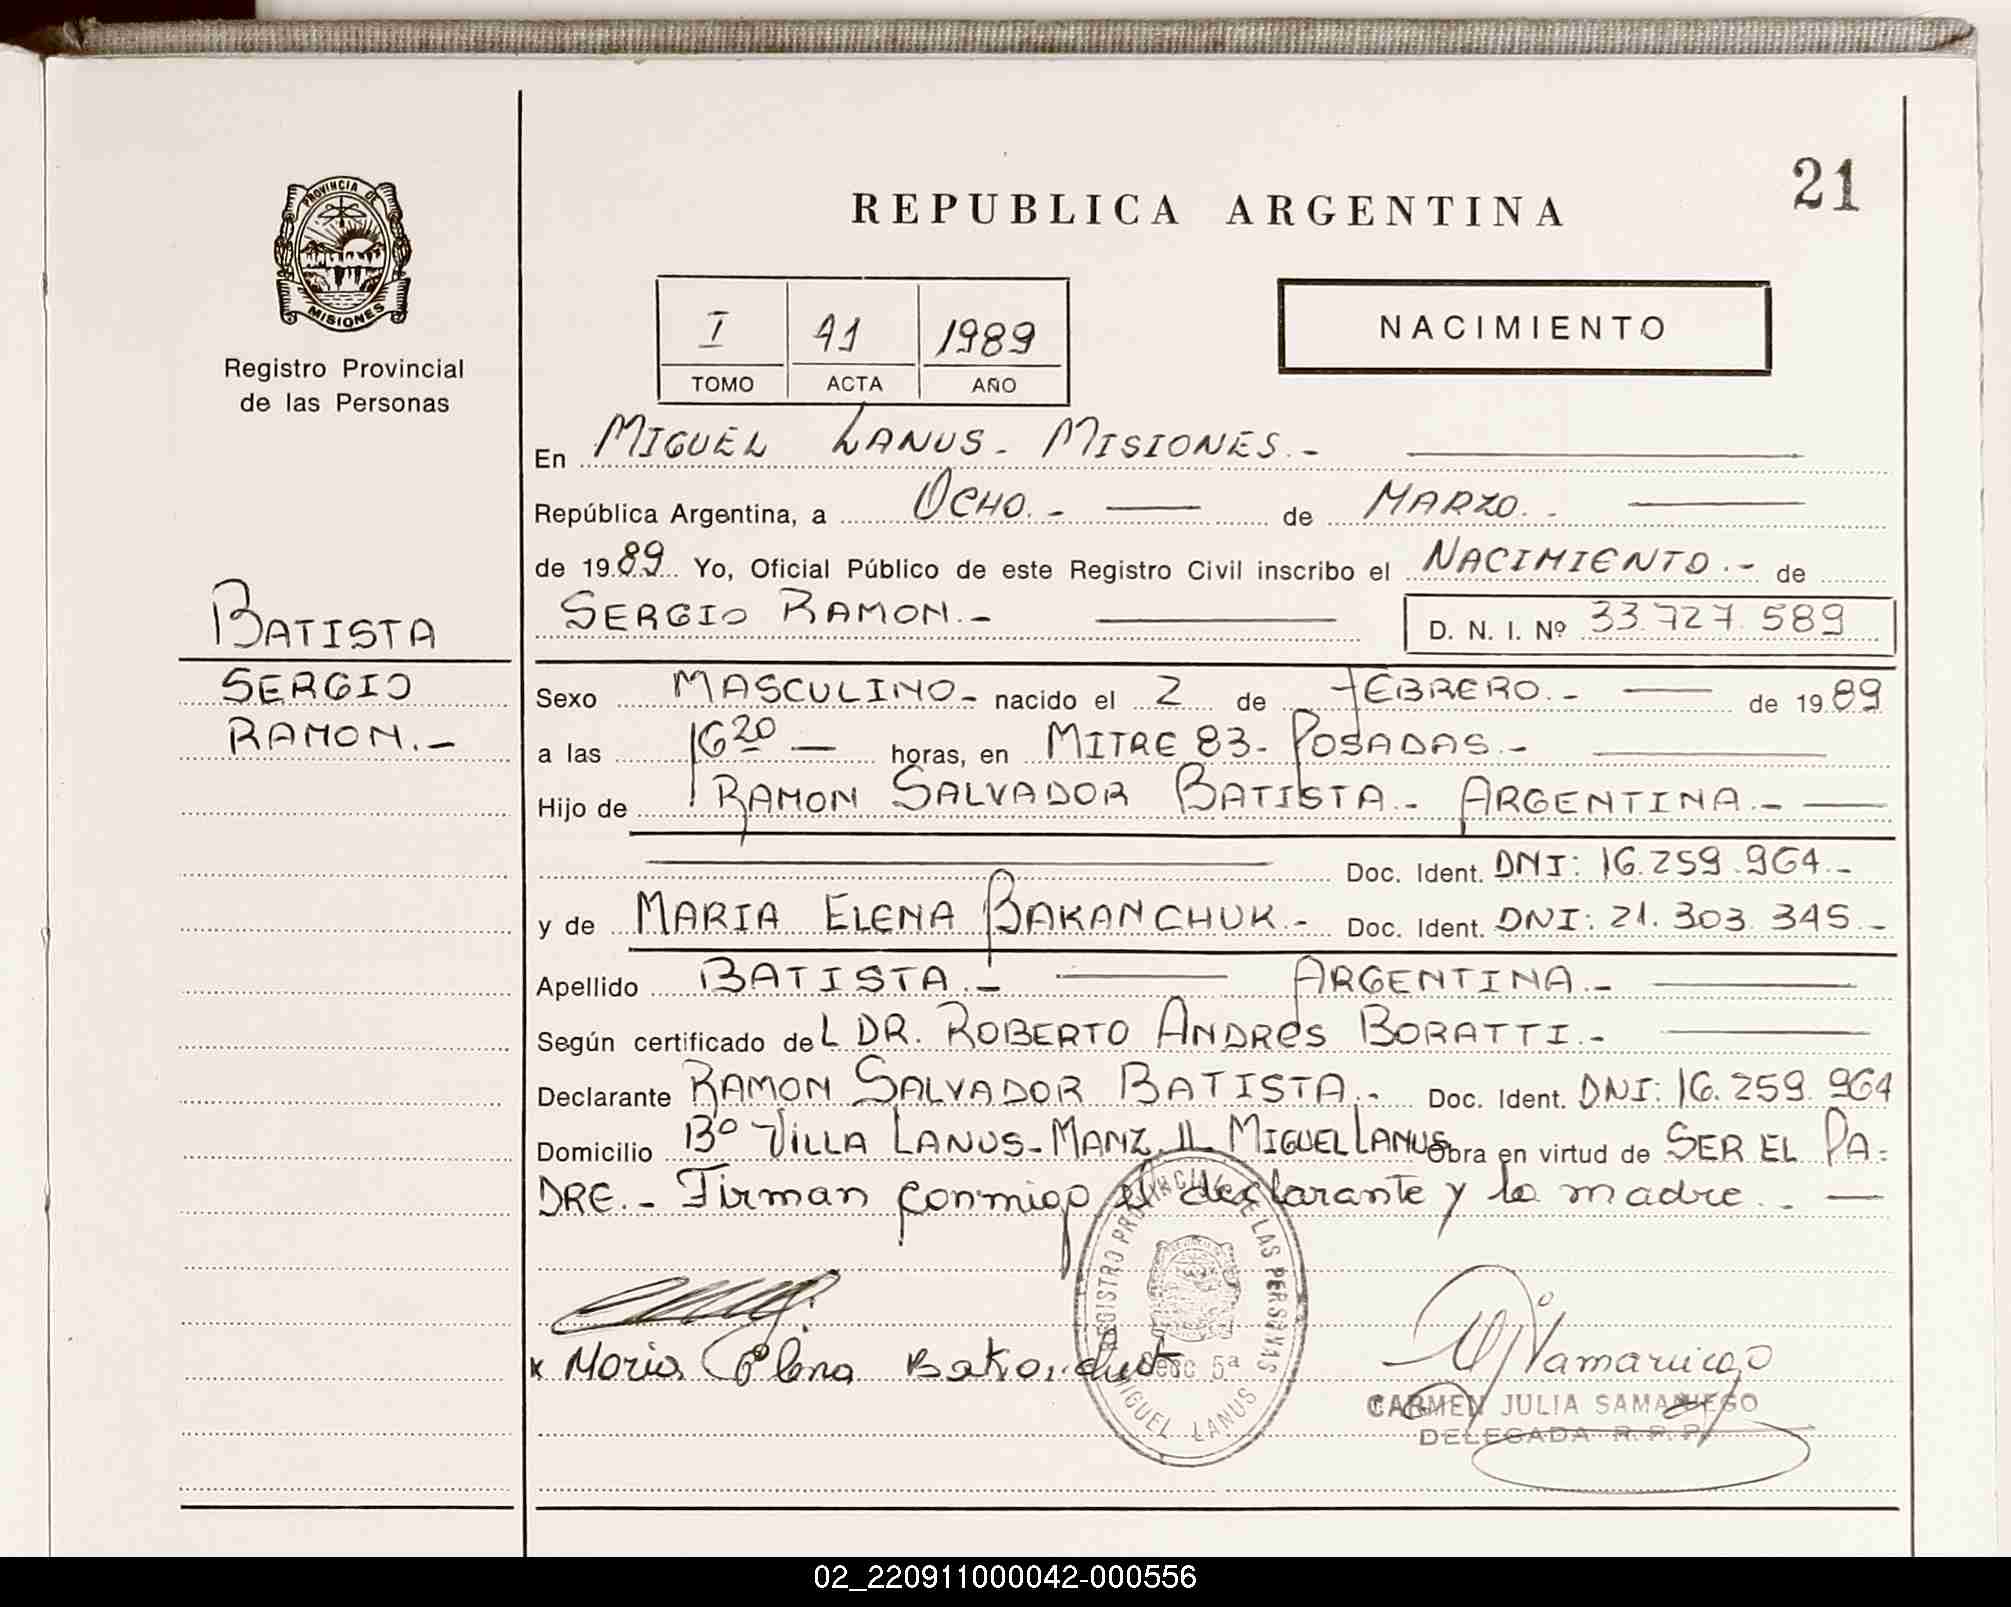 21
PROVINCIA DE
MISIONES
Registro Provincial
de las Personas
REPUBLICA ARGENTINA
I 41 1989
TOMO ACTA AÑO
NACIMIENTO
En MIGUEL LANUS - MISIONES.-
República Argentina, a OCHO.- de MARZO.-
de 1989 Yo, Oficial Público de este Registro Civil inscribo el NACIMIENTO.- de
SERGIO RAMON.- D. N. I. Nº 33.727.589
BATISTA
SERGIO
RAMON.-
Sexo MASCULINO- nacido el 2 de FEBRERO.- de 1989
a las 16 20 horas, en MITRE 83- POSADAS.-
Hijo de RAMON SALVADOR BATISTA.- ARGENTINA.-
Doc. Ident. DNI: 16.259.964.-
y de MARIA ELENA BAKANCHUK.- Doc. Ident. DNI: 21.303.345.-
Apellido BATISTA.- ARGENTINA.-
Según certificado deL DR. ROBERTO ANDRES BORATTI.-
Declarante RAMON SALVADOR BATISTA.- Doc. Ident. DNI: 16.259.964
Domicilio Bº VILLA LANUS- MANZ. II MIGUEL LANUS Obra en virtud de SER EL PA=
DRE.- Firman conmigo el declarante y la madre.-
REGISTRO PROVINCIAL DE LAS PERSONAS
Secc 5ª
MIGUEL LANUS
x Maria Elena
CARMEN JULIA SAMANIEGO
DELEGADA R. P. P.
02_220911000042-000556